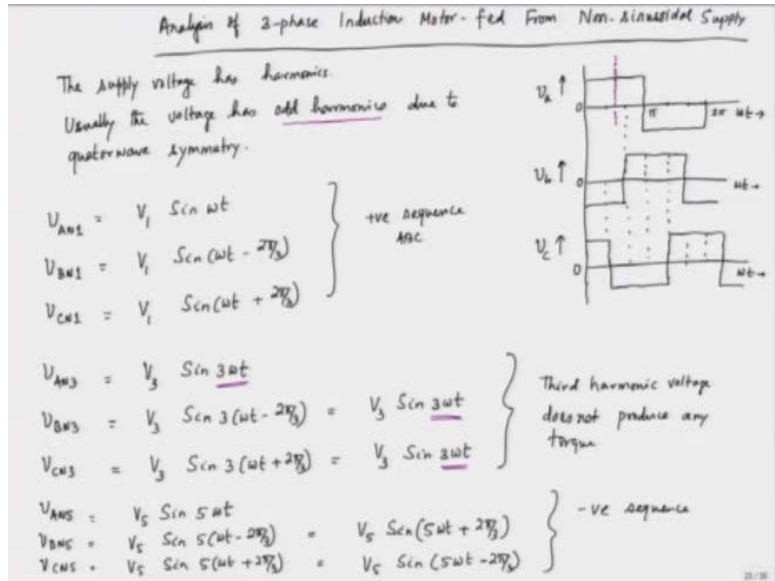 Analysis of 3-phase Induction Motor-fed From Non-sinusoidal Supply
The supply voltage has harmonics.
Usually the voltage has odd harmonics due to
quaterwave symmetry.
υ_AN1 = V_1 Sin ωt
υ_BN1 = V_1 Sin (ωt - 2π/3)
υ_CN1 = V_1 Sin (ωt + 2π/3)
+ve sequence
ABC
υ_a ↑
0 π 2π ωt→
υ_b ↑
0 ωt→
υ_c ↑
0 ωt→
υ_AN3 = V_3 Sin 3ωt
υ_BN3 = V_3 Sin 3(ωt - 2π/3) = V_3 Sin 3ωt
υ_CN3 = V_3 Sin 3(ωt + 2π/3) = V_3 Sin 3ωt
Third harmonic voltage
does not produce any
torque
υ_AN5 = V_5 Sin 5ωt
υ_BN5 = V_5 Sin 5(ωt - 2π/3) = V_5 Sin (5ωt + 2π/3)
υ_CN5 = V_5 Sin 5(ωt + 2π/3) = V_5 Sin (5ωt - 2π/3)
-ve sequence